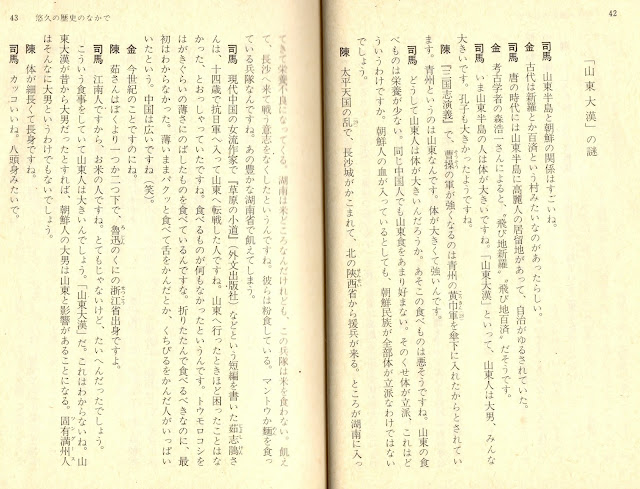 42
「山東大漢」の謎
司馬　山東半島と朝鮮の関係はすごいね。
金　古代は新羅とか百済という村みたいなのがあったらしい。
司馬　唐の時代には山東半島に高麗人の居留地があって、自治がゆるされていた。
金　考古学者の森浩一さんによると、〝飛び地新羅〟〝飛び地百済〟だそうです。
司馬　いま山東半島の人は体が大きいですね。「山東大漢」といって、山東人は大男、みんな
大きいです。孔子も大きかったようですね。
陳　『三国志演義』で、曹操の軍が強くなるのは青州の黄巾軍を傘下に入れたからとされてい
ます。青州というのは山東なんです。体が大きくて強いんです。
司馬　どうして山東人は体が大きいんだろうか。あそこの食べものは悪そうですね。山東の食
べものは栄養が少ない。同じ中国人でも山東食をあまり好まない。そのくせ体が立派、これはど
ういうわけですか。朝鮮人の血が入っているとしても、朝鮮民族が全部体が立派なわけではない
でしょう。
陳　太平天国の乱で、長沙城がかこまれて、北の陝西省から援兵が来る。ところが湖南に入っ
43　悠久の歴史のなかで
てきて栄養不良になってる。湖南は米どころなんだけれども、この兵隊は米を食わない。飢え
て、長沙へ来て戦う意志をなくしたというんですね。彼らは粉食している。マントウか麺を食っ
ている兵隊なんですね。あの豊かな湖南省で飢えてしまう。
司馬　現代中国の女流作家で『草原の小道』（外文出版社）などという短編を書いた茹志鵑さ
んは、十四歳で抗日軍へ入って山東へ転戦した人ですね。山東へ行ったときほど困ったことはな
かった、とおっしゃっていたですね。食べるものが何もなかったというんです。トウモロコシを
はがきぐらいの薄さにのばしたものを食べているんですな。折りたたんで食べるべきなのに、最
初はわからなかった。薄いままパクッと食べて舌をかんだとか、くちびるをかんだ人がいっぱい
いたという。中国は広いですね（笑）。
金　今世紀のことですのにね。
陳　茹さんはぼくより一つか二つ下で、魯迅のくにの浙江省出身ですよ。
司馬　江南人ですから、お米の人ですね。とてもじゃないけど、たいへんだったでしょう。
こういう食事をしていて山東人は大きいんでしょう。「山東大漢」だ。これはわからないね。山
東大漢が昔から大男だったとすれば、朝鮮人の大男は山東と影響があることになる。固有満州人
はそんなに大男というわけでもないでしょう。
陳　体が細長くて長身ですね。
司馬　カッコいいね。八頭身みたいで。